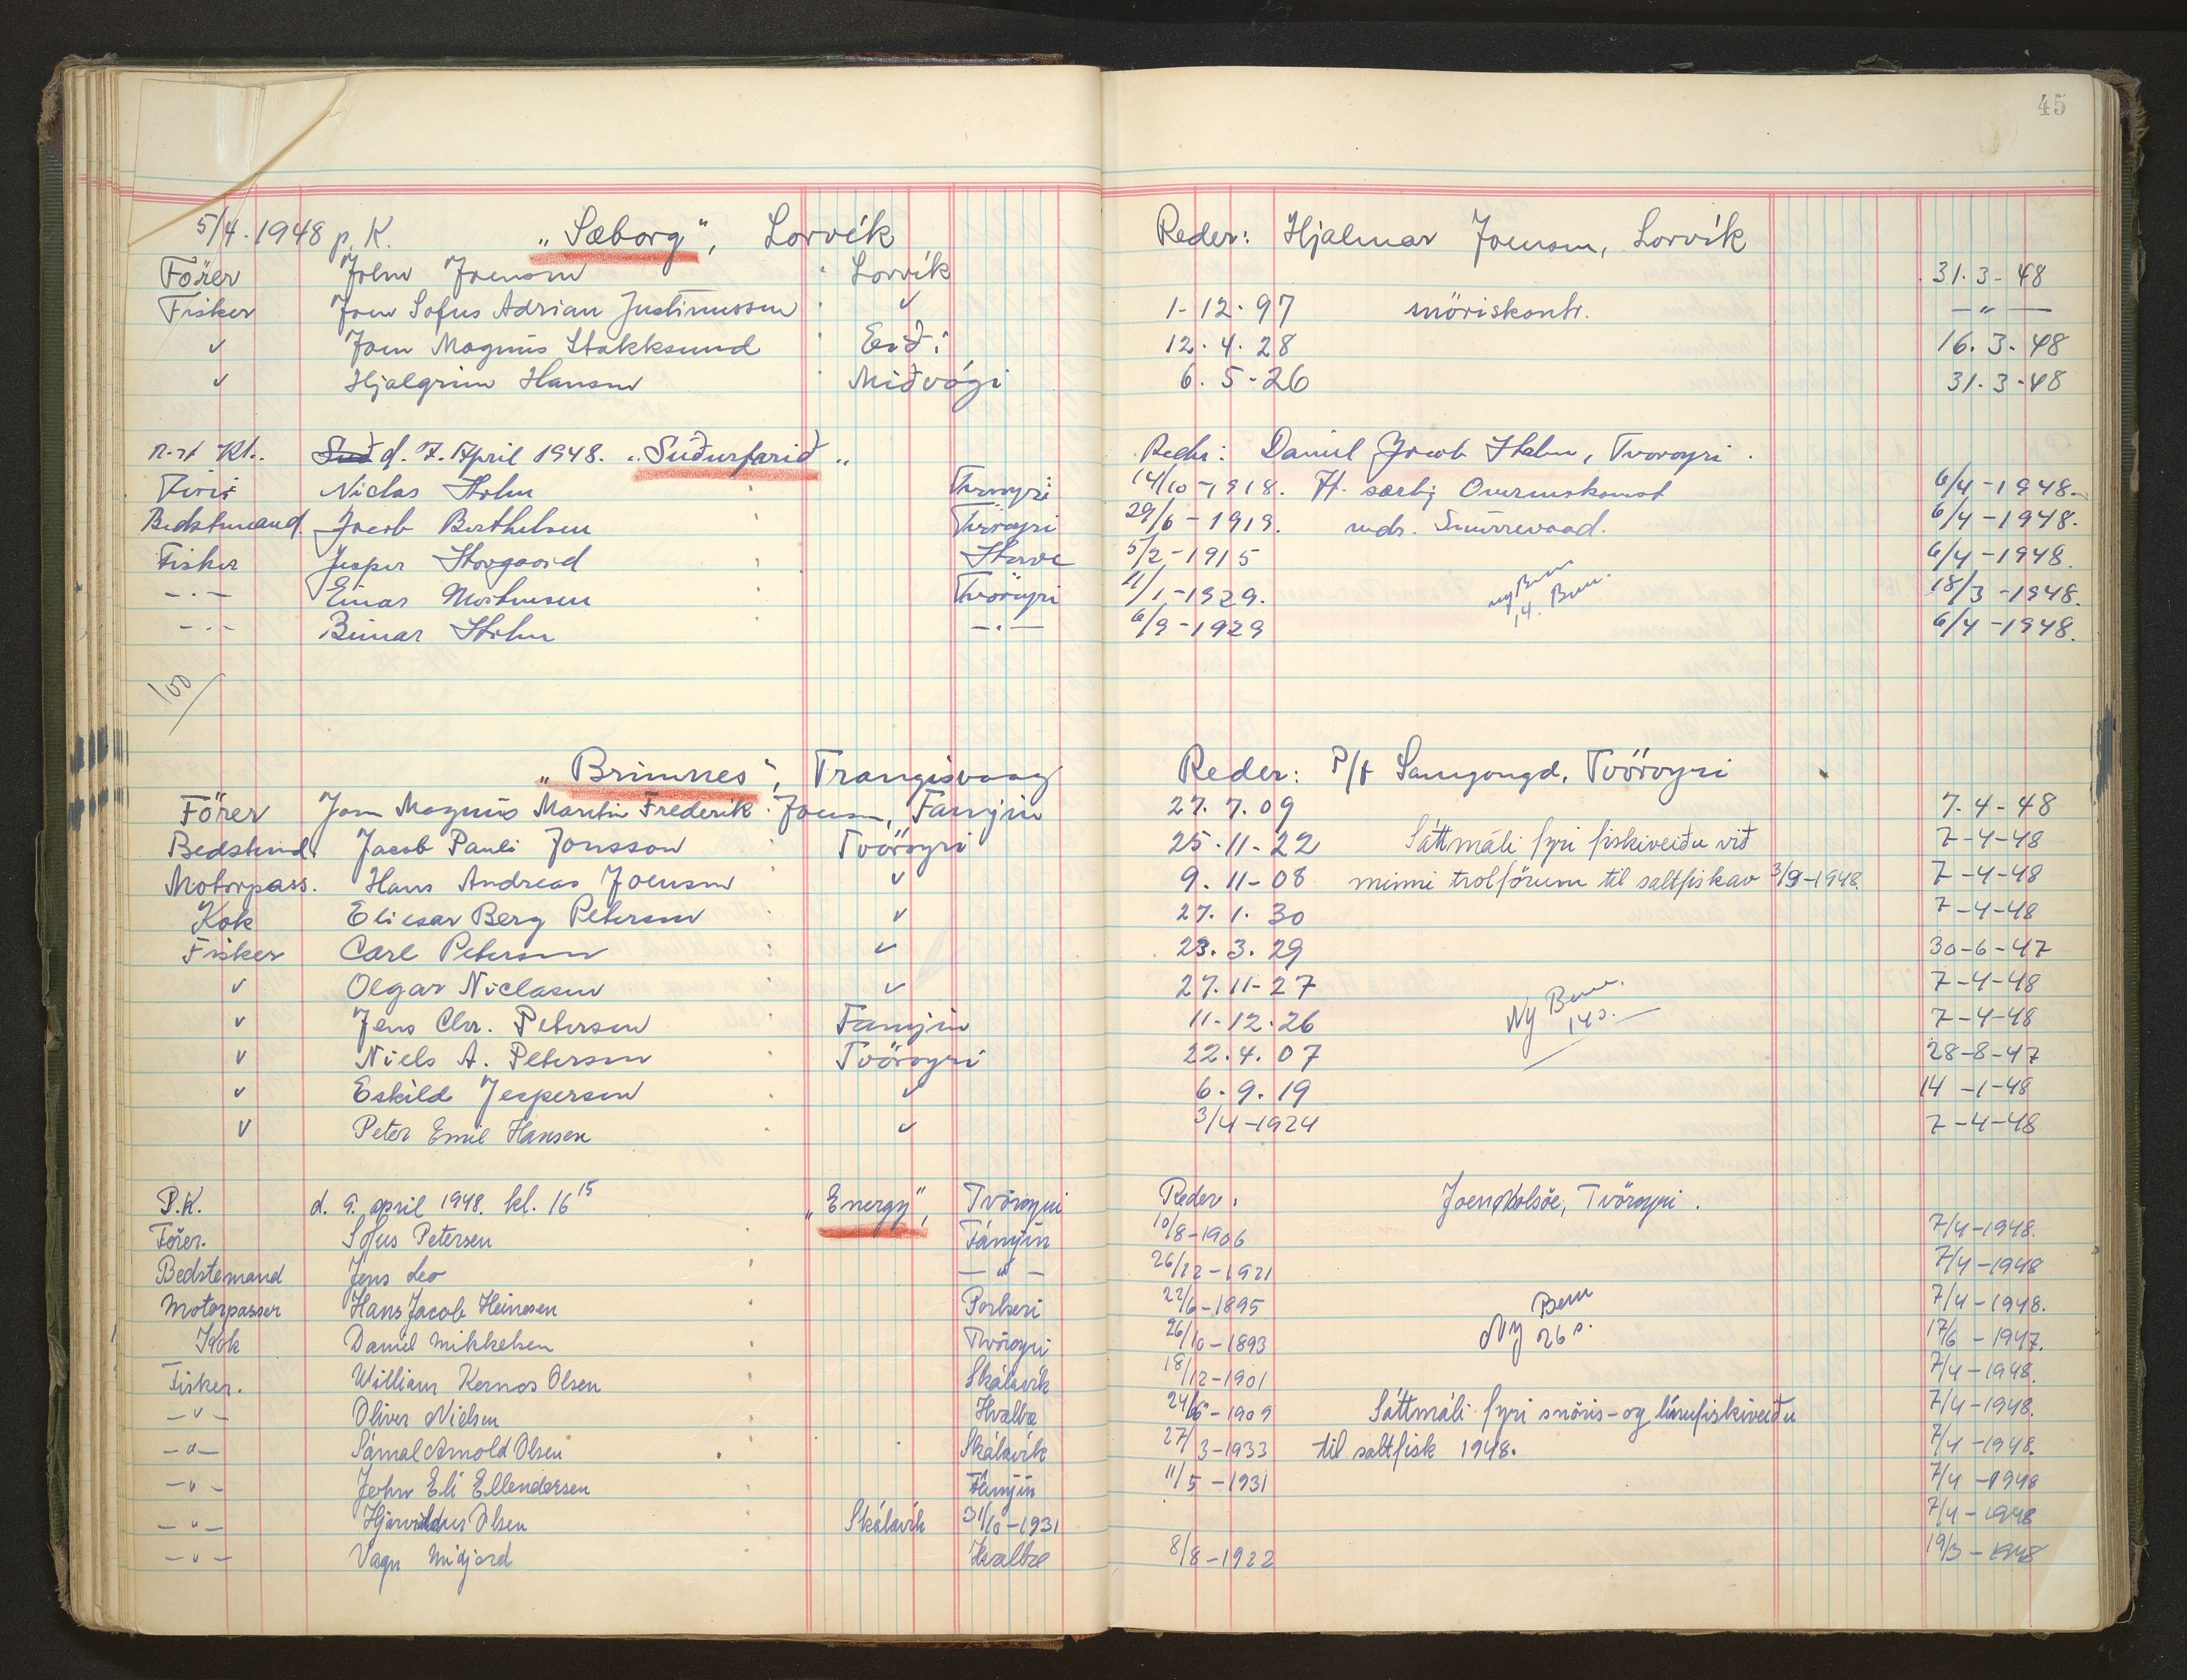 45
5/4. 1948 p. K. „Sæborg“, Sorvík Reder: Hjalmar Joensen, Sorvík
Förer John Joensen Sorvík 31. 3 - 48
Fisker Joen Sofus Adrian Justinussen " 1-12-97 snöriskontr. — " —
" Joen Magnus Stakksund Eidi 12. 4. 28 16. 3. 48
" Hjalgrim Hansen Miðvági 6. 5-26 31. 3 - 48
d. 7. April 1948. „Suðurfarið“ Redri: Daniel Jacob Holm, Tvöroyri.
Förir Niclas Holm Tvöroyri 14/10-1918. Ft. særlig Overenskomst 6/4-1948.
Bedstemand Jacob Berthelsen Tvöroyri 29/6-1919. vedr. Snurrevaad. 6/4-1948.
Fisker Jesper Horgaard Hove 5/2-1915 6/4-1948.
-"- Einar Mortensen Tvöroyri 11/1-1929. ny Bem. 18/3-1948.
-"- Beinar Holm -"- 6/9-1929 6/4-1948.
„Brimnes“, Trangisvaag Reder: P/f Samyongd, Tvöröyri
Förer Joen Magnus Martin Frederik Joensen, Famjin 27. 7. 09 7. 4 - 48
Bedstmd. Jacob Pauli Jonsson Tvöröyri 25. 11 - 22 Sáttmáli fyri fiskiveiðu við 7-4-48
Motorpass. Hans Andreas Joensen " 9. 11-08 minni trolförum til saltfiskav 3/9-1948. 7-4-48
Kok Eliesar Berg Petersen " 27. 1. 30 7-4-48
Fisker Carl Petersen " 23. 3. 29 30-6-47
" Olgar Niclasen " 27. 11-27 7-4-48
" Jens Chr. Petersen Famjin 11-12-26 Ny Bem. 140. 7-4-48
" Niels A. Petersen Tvöroyri 22. 4. 07 28-8-47
" Eskild Jespersen " 6. 9. 19 14-1-48
" Peter Emil Hansen " 3/4-1924 7-4-48
P.K. d. 9. april 1948. kl. 16 15 „Energy“, Tvöroyri Reder: Joen Kolsöe, Tvöroyri.
Förer. Sofus Petersen Fámjin 10/8-1906 7/4-1948.
Bedstemand Jens Leo — " — 26/12-1921 7/4-1948
Motorpasser Hans Jacob Heinesen Porkeri 22/6-1895 Ny Bem 7/4-1948.
Kok Daniel Mikkelsen Tvöroyri 26/10-1893 26 s. 17/6-1947.
Fisker. William Kernos Olsen Skálavík 18/12-1901 7/4-1948.
-"- Oliver Nielsen Hvalba 24/6-1909 Sáttmáli fyri snöris-og línufiskiveiðu 7/4-1948.
-"- Sámal Arnold Olsen Skálavík 27/3-1933 til saltfisk 1948. 7/4-1948.
-"- John Eli Ellendersen Famjin 11/5-1931 7/4-1948
-"- Olsen Skálavík 31/10-1931 7/4-1948
-"- Vagn Midjord Hvalba 8/8-1922 19/3-1948